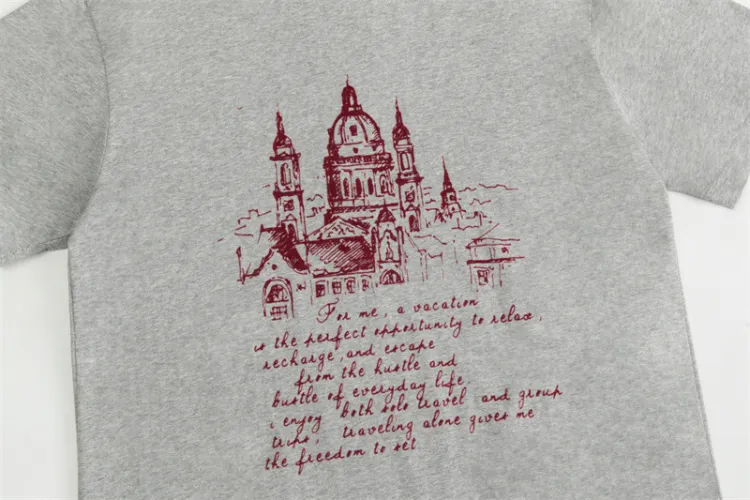 For me, a vacation
is the perfect opportunity to relax,
recharge, and escape
from the hustle and
bustle of everyday life
i enjoy both solo travel and group
trips, traveling alone gives me
the freedom to set